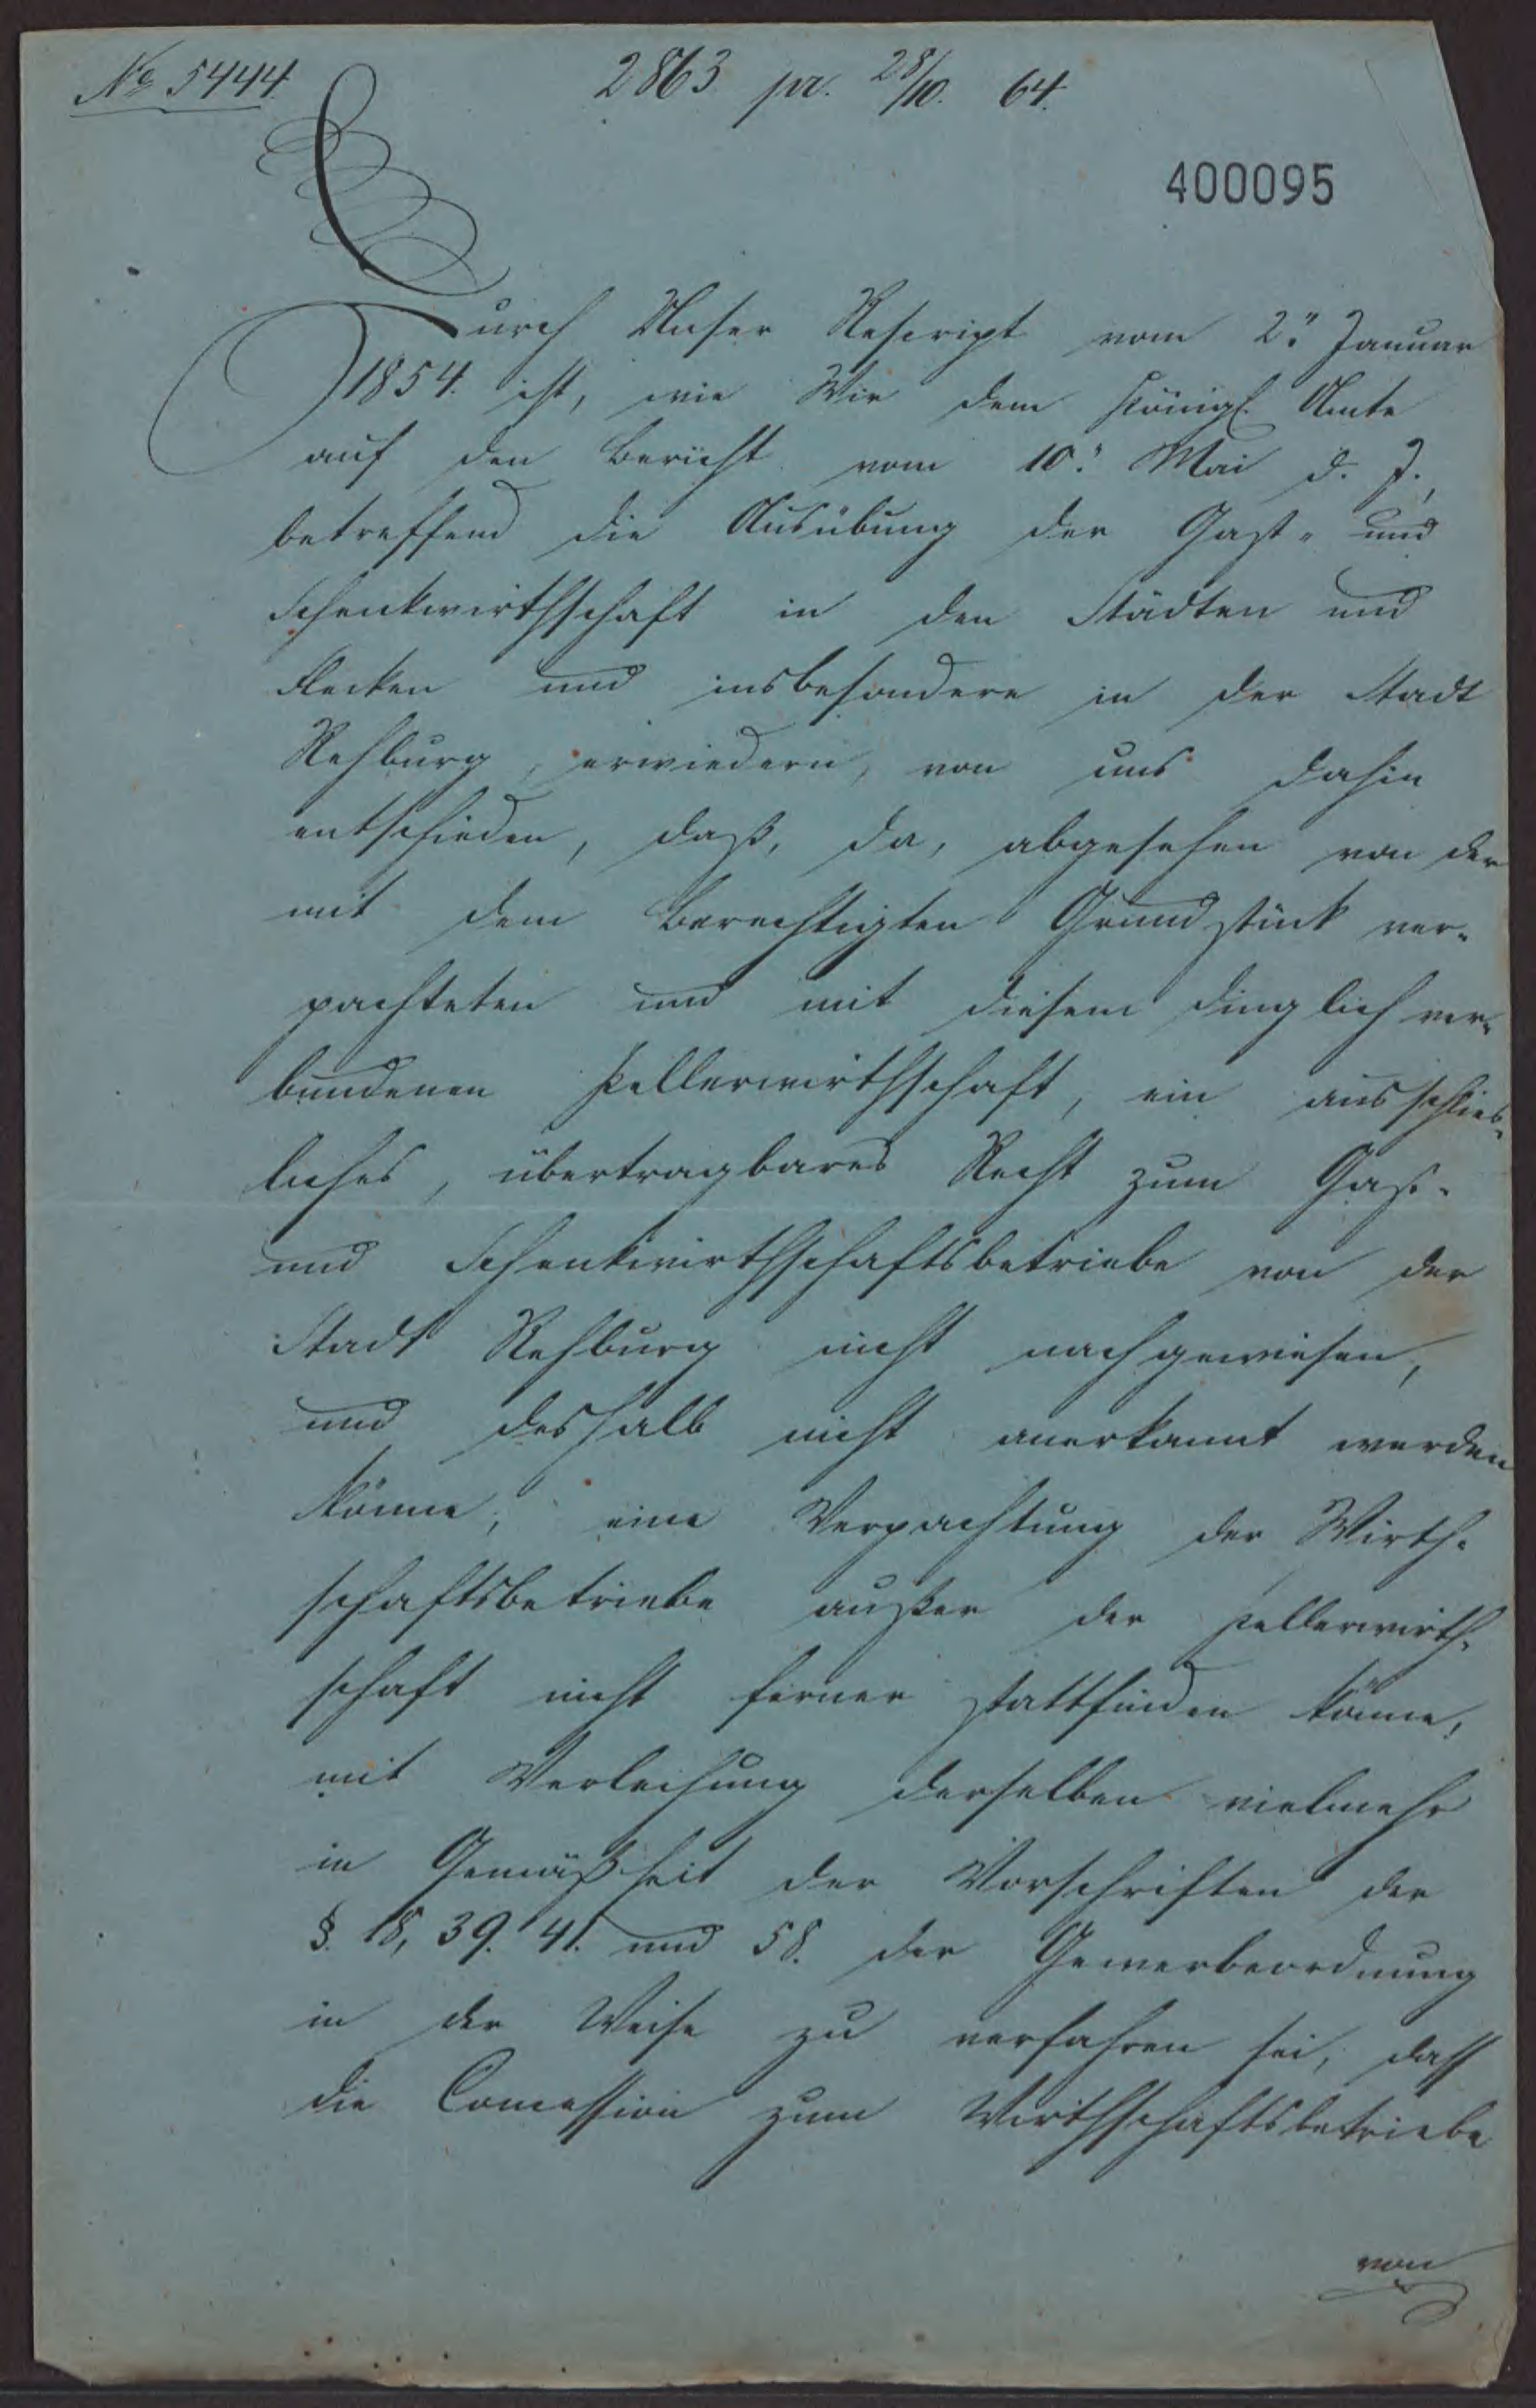 No 5444.
2863 pr. 28/10. 64.
400095
Durch Unser Rescript vom 2ten Januar
1854. ist, wie Wir dem Königl. Amte
auf den Bericht vom 10ten Mai d. J.,
betreffend die Ausübung der Gast- und
Schenkwirthschaft in den Städten und
Flecken und insbesondere in der Stadt
Rehburg, erwiedern, von uns dahin
entschieden, daß, da, abgesehen von der
mit dem berechtigten Grundstück ver-
pachteten und mit diesem dinglich ver-
bundenen Kellerwirthschaft, ein ausschließ-
liches, übertragbares Recht zum Gast-
und Schenkwirthschaftsbetriebe von der
Stadt Rehburg nicht nachgewiesen,
und deshalb nicht anerkannt werden
könne, eine Verpachtung der Wirth-
schaftsbetriebe außer der Kellerwirth-
schaft nicht ferner stattfinden könne,
mit Verleihung derselben vielmehr
in Gemäßheit der Vorschriften der
§. 18, 39. 41. und 58. der Gewerbeordnung
in der Weise zu verfahren sei, daß
die Concession zum Wirthschaftsbetriebe
von